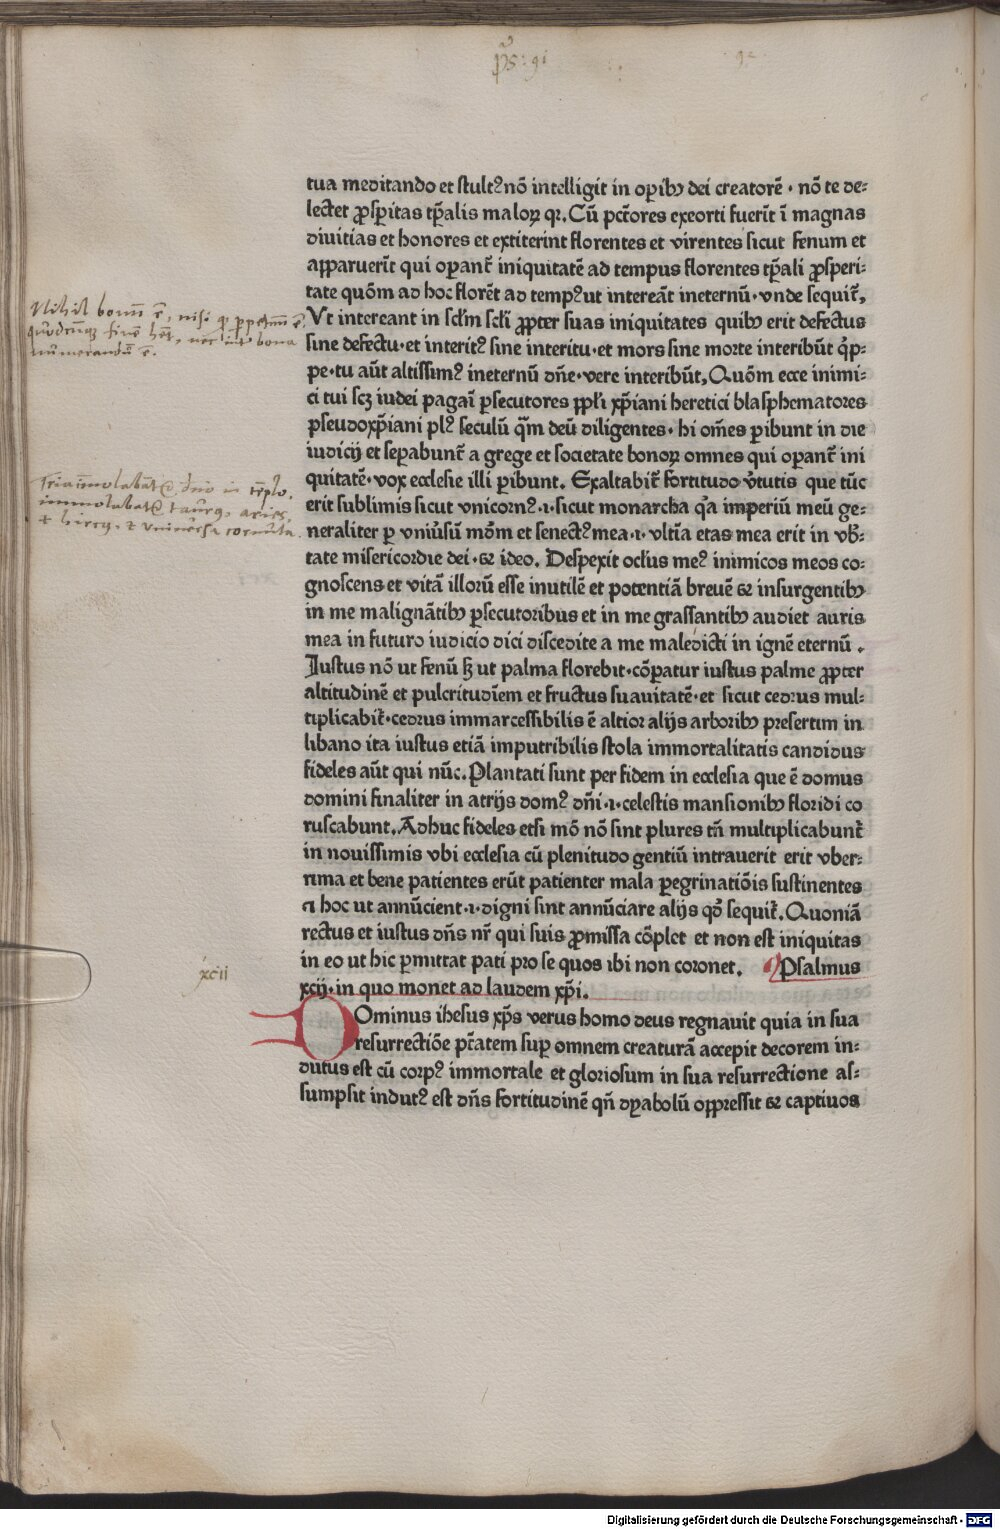 ps: 91
tua meditando et stultꝰ nō intelligit in oꝑibꝫ dei creatorē · nō te de⸗
lectet ꝓsꝑitas tꝑalis maloꝝ qꝛ. Cū pctōres exeorti fuerīt ī magnas
diuitias et honores et extiterint florentes et virentes sicut fenum et
apparuerīt qui oꝑant̃ iniquitatē ad tempus florentes tꝑali ꝓsperi⸗
tate quōm ad hoc florēt ad tempꝰ ut intereāt ineternū · vnde sequit̃,
Vt intereant in sc̄lm sc̄li ꝓpter suas iniquitates quibꝫ erit defectus
sine defectu · et interitꝰ sine interitu · et mors sine morte interibūt q̄ꝑ⸗
pe · tu aūt altissimꝰ ineternū dn̄e · vere interibūt, Quōm ecce inimi⸗
ci tui scꝫ iudei pagaī ꝑsecutores ꝓpl̄i xp̄iani heretici blasphematores
pseudoxp̄iani plꝰ seculū q̄m deū diligentes · hi om̄es ꝑibunt in die
iudicij et seꝑabunt̃ a grege et societate bonoꝝ omnes qui oꝑant̃ ini
quitatē · vox ecclesie illi ꝑibunt. Exaltabit̃ fortitudo v̄tutis que tūc
erit sublimis sicut vnicornꝰ · i · sicut monarcha q̄a imperiū meū ge⸗
neraliter ꝑ vniūsū mōm et senectꝰ mea · i · vltīa etas mea erit in vb̄⸗
tate misericordie dei · ꝛ ideo. Despexit ocl̄us meꝰ inimicos meos co⸗
gnoscens et vitā illorū esse inutilē et potentiā breuē ꝛ insurgentibꝫ
in me malignātibꝫ ꝑsecutoribus et in me grassantibꝫ audiet auris
mea in futuro iudicio dici discedite a me maledicti in ignē eternū .
Iustus nō ut fenū sꝫ ut palma florebit · cōꝑatur iustus palme ꝓpter
altitudinē et pulcritudīem et fructus suauitatē · et sicut cedrus mul⸗
tiplicabit̃ · cedrus immarcessibilis ē altior alijs arboribꝫ presertim in
libano ita iustus etiā imputribilis stola immortalitatis candidus
fideles aūt qui nūc. Plantati sunt per fidem in ecclesia que ē domus
domini finaliter in atrijs domꝰ dn̄i · i · celestis mansionibꝫ floridi co
ruscabunt. Adhuc fideles etsi mō nō sint plures tn̄ multiplicabunt̃
in nouissimis vbi ecclesia cū plenitudo gentiū intrauerit erit vber⸗
rima et bene patientes erūt patienter mala ꝑegrinatiōis sustinentes
a hoc ut annūcient · i · digni sint annūciare alijs qd̄ sequit̃. Quoniā
rectus et iustus dn̄s nr̄ qui suis ꝓmissa cōplet et non est iniquitas
in eo ut hic ꝑmittat pati pro se quos ibi non coronet. Psalmus
xcij · in quo monet ad laudem xp̄i.
Dominus ihesus xp̄s verus homo deus regnauit quia in sua
resurrectiōe pt̄atem suꝑ omnem creaturā accepit decorem in⸗
dutus est cū corpꝰ immortale et gloriosum in sua resurrectione as⸗
sumpsit indutꝰ est dn̄s fortitudinē qn̄ dyabolū oppressit ꝛ captiuos
Nihil bonū ē, nisi
bona
numerandū ē.
Tria imolabāt̃ dn̄o in tēplo,
immolabat̃ taurꝰ, aries,
et hircꝰ, et vniuersa cornuta.
xcii
Digitalisierung gefördert durch die Deutsche Forschungsgemeinschaft - DFG